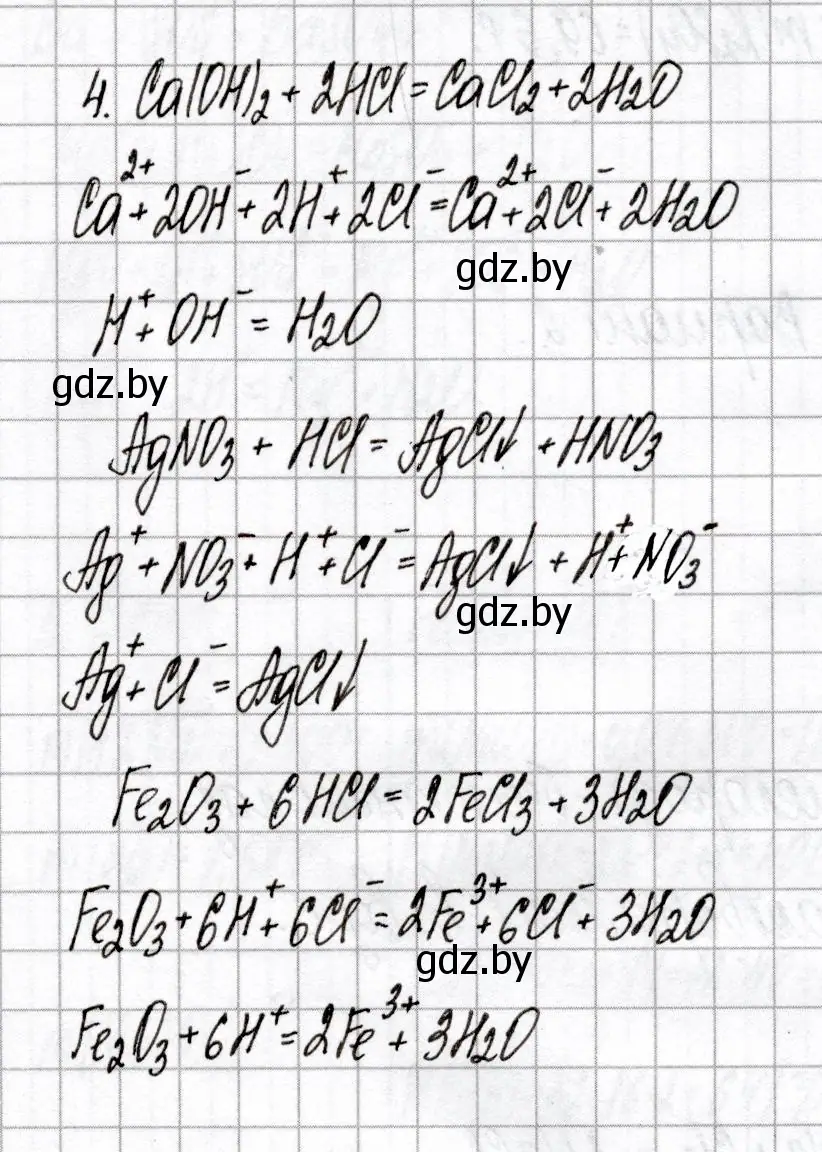 4. Ca(OH)₂ + 2HCl = CaCl₂ + 2H₂O
Ca²⁺ + 2OH⁻ + 2H⁺ + 2Cl⁻ = Ca²⁺ + 2Cl⁻ + 2H₂O
gdz.by
H⁺ + OH⁻ = H₂O
gdz.by
AgNO₃ + HCl = AgCl↓ + HNO₃
Ag⁺ + NO₃⁻ + H⁺ + Cl⁻ = AgCl↓ + H⁺ + NO₃⁻
gdz.by
Ag⁺ + Cl⁻ = AgCl↓
Fe₂O₃ + 6HCl = 2FeCl₃ + 3H₂O
Fe₂O₃ + 6H⁺ + 6Cl⁻ = 2Fe³⁺ + 6Cl⁻ + 3H₂O
gdz.by
Fe₂O₃ + 6H⁺ = 2Fe³⁺ + 3H₂O